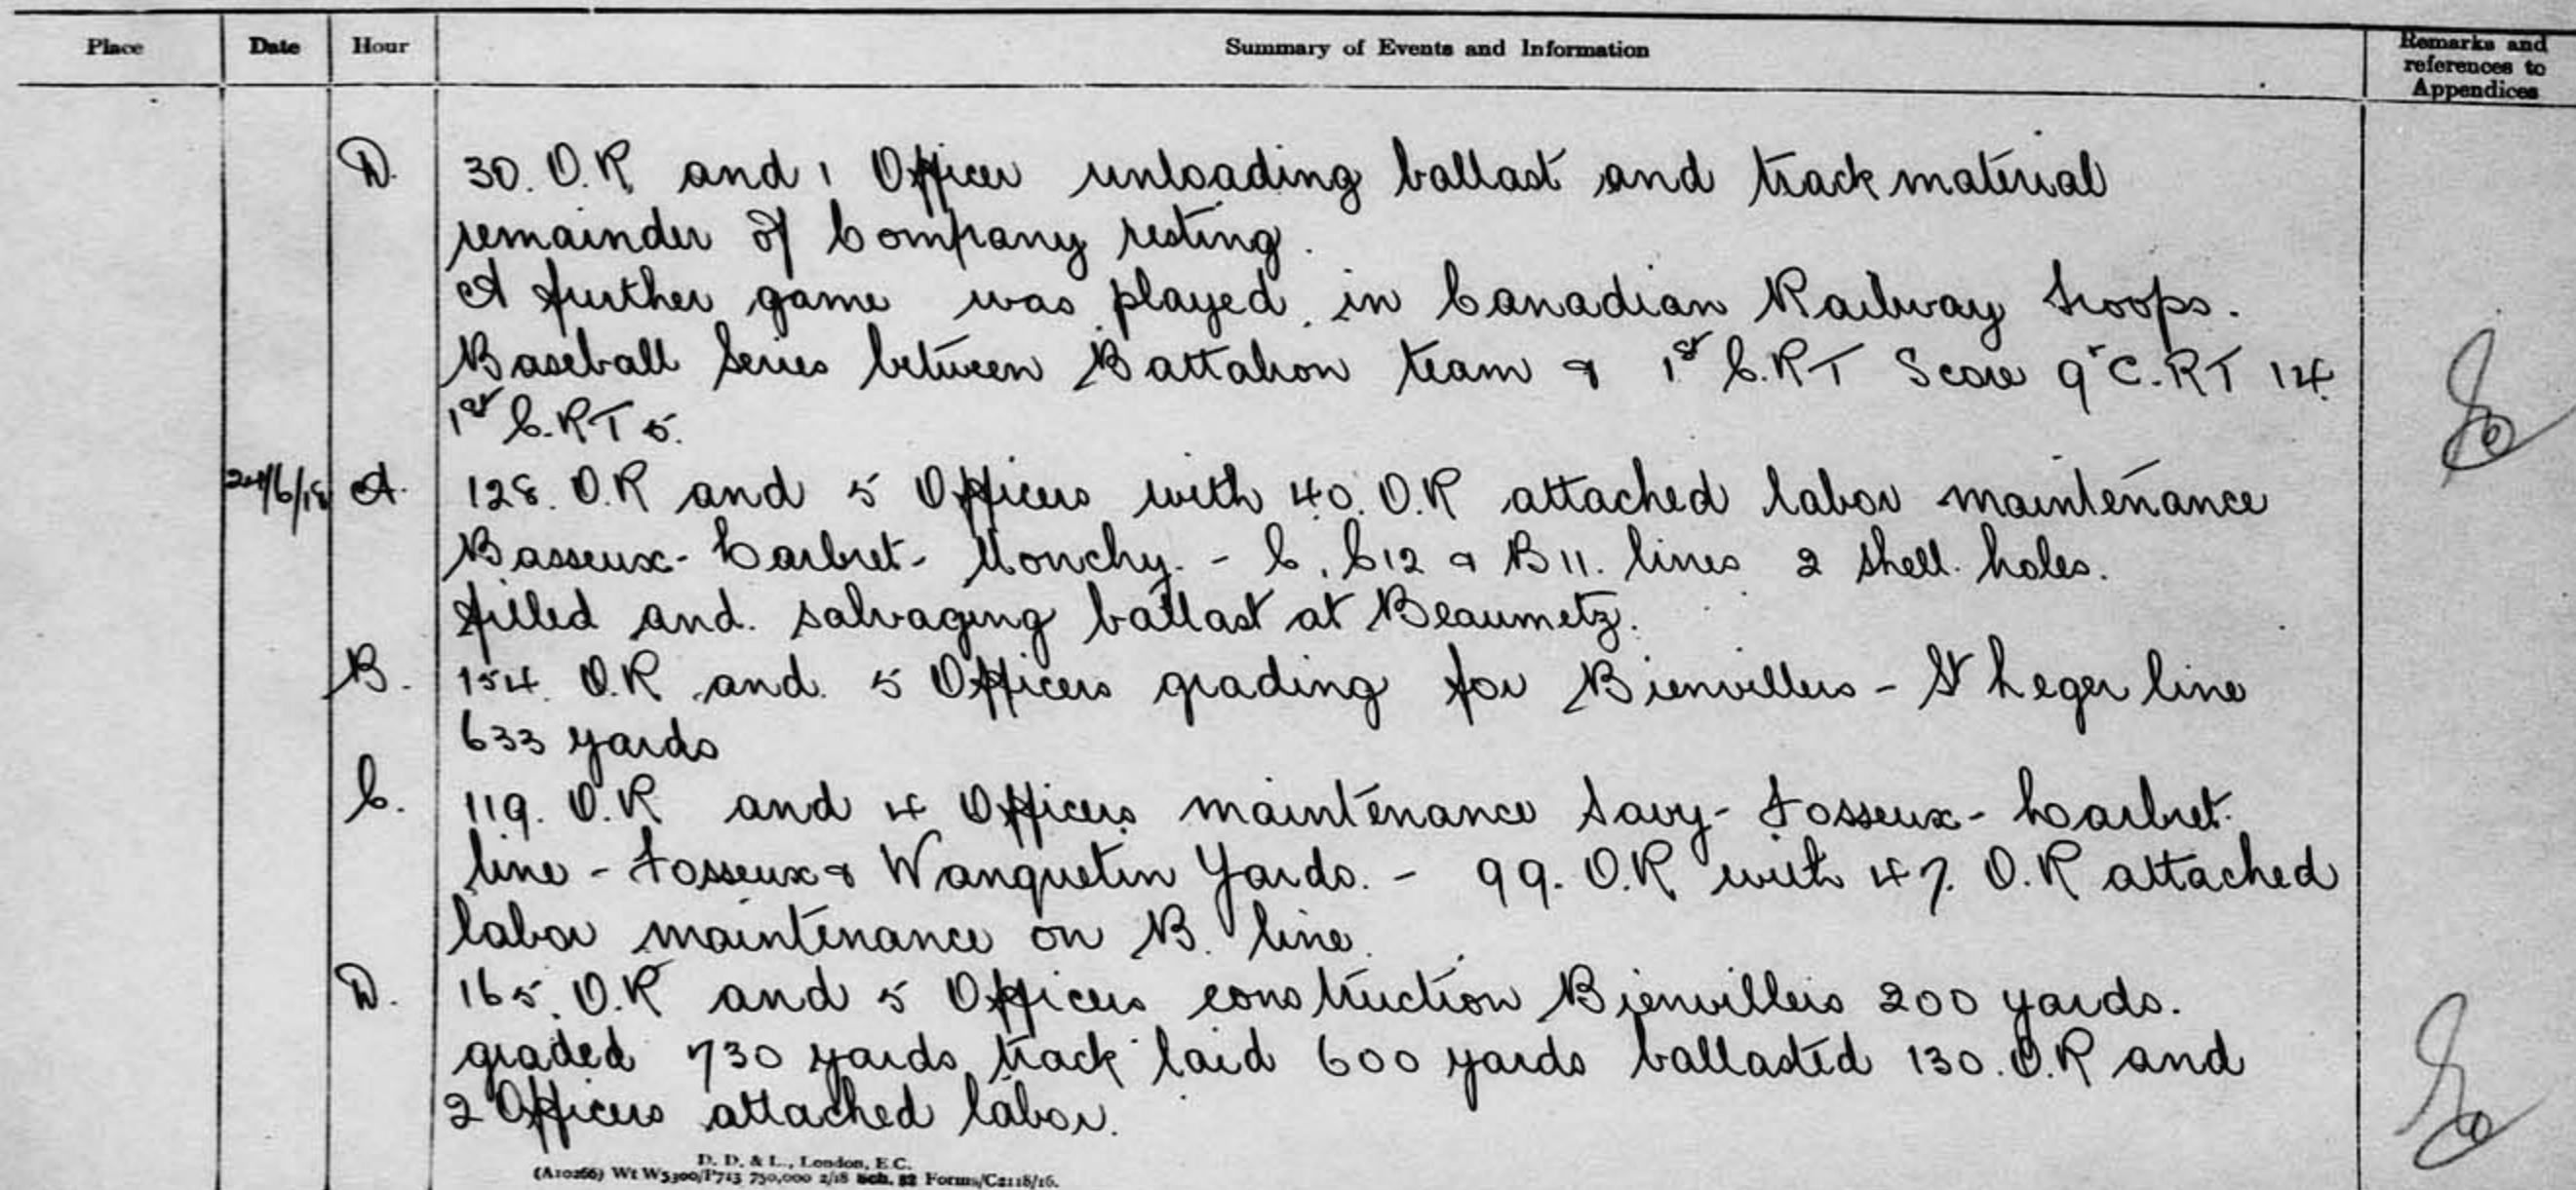 Place Date Hour Summary of Events and Information Remarks and references to Appendices
D. 30. O.R and 1 Officer unloading ballast and track material
remainder of Company resting.
A further game was played in Canadian Railway Troops.
Baseball Series between Battalion team & 1st C.R.T Score 9" C.R.T 14.
1st C.R.T 5.
24/6/18 A. 128. O.R and 5 Officers with 40. O.R attached labor maintenance
Basseux - Larbret - Monchy. - C, C12 & B11. lines 2 shell. holes.
filled and. salvaging ballast at Beaumetz.
B. 154. O.R and. 5 Officers grading for Bienvillers - St Leger line
633 yards
C. 119. O.R and 4 Officers maintenance Savy - Fosseux - Larbret.
line - Fosseux & Wanquetin Yards. - 99. O.R with 47. O.R attached
labor maintenance on B. line.
D. 165. O.R and 5 Officers construction Bienvillers 200 yards.
graded 730 yards track laid 600 yards ballasted 130. O.R and
2 Officers attached labor.
D. D. & L., London, E.C.
(A10266) Wt W5300/P713 750,000 2/18 Sch. 52 Forms/C2118/16.